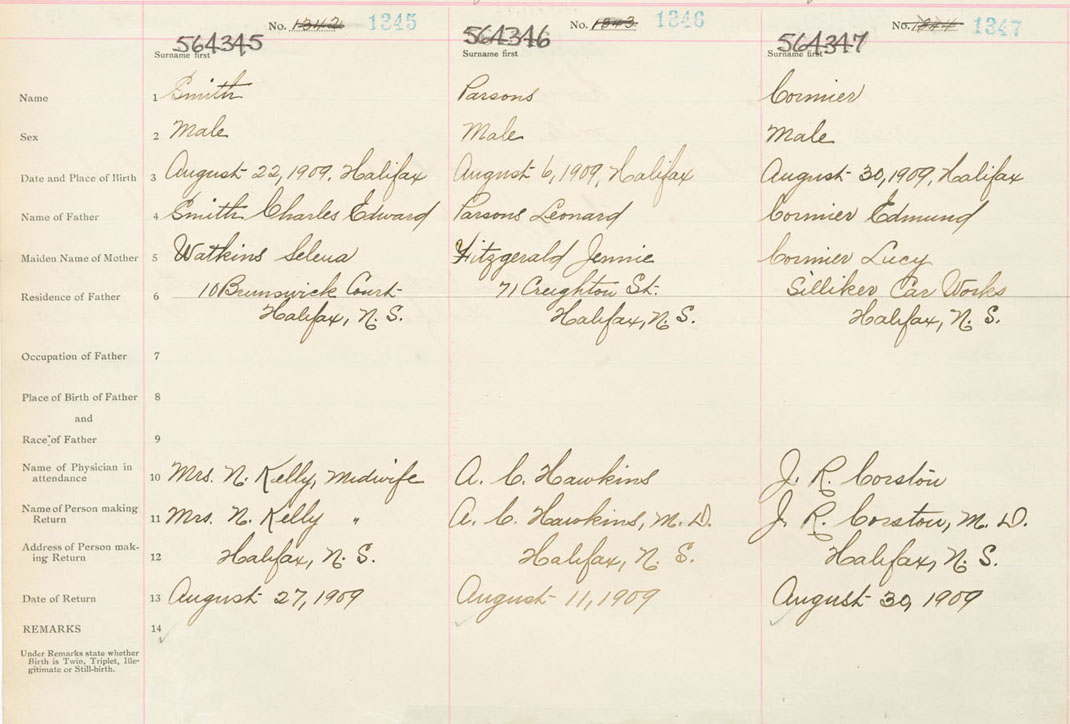 No. 1342 1345 No. 1843 1346 No. 1344 1347
564345 564346 564347
Surname first Surname first Surname first
Name 1 Smith Parsons Cormier
Sex 2 Male Male Male
Date and Place of Birth 3 August 22, 1909, Halifax August 6, 1909, Halifax August 30, 1909, Halifax
Name of Father 4 Smith Charles Edward Parsons Leonard Cormier Edmund
Maiden Name of Mother 5 Watkins Selena Fitzgerald Jennie Cormier Lucy
Residence of Father 6 10 Brunswick Court 71 Creighton St. Silliker Car Works
Halifax, N. S. Halifax, N. S. Halifax, N. S.
Occupation of Father 7
Place of Birth of Father 8
and
Race of Father 9
Name of Physician in
attendance 10 Mrs. N. Kelly, Midwife A. C. Hawkins J. R. Corston
Name of Person making
Return 11 Mrs. N. Kelly " A. C. Hawkins, M. D. J. R. Corston, M. D.
Address of Person mak-
ing Return 12 Halifax, N. S. Halifax, N. S. Halifax, N. S.
Date of Return 13 August 27, 1909 August 11, 1909 August 30, 1909
REMARKS 14
Under Remarks state whether
Birth is Twin, Triplet, Ille-
gitimate or Still-birth.